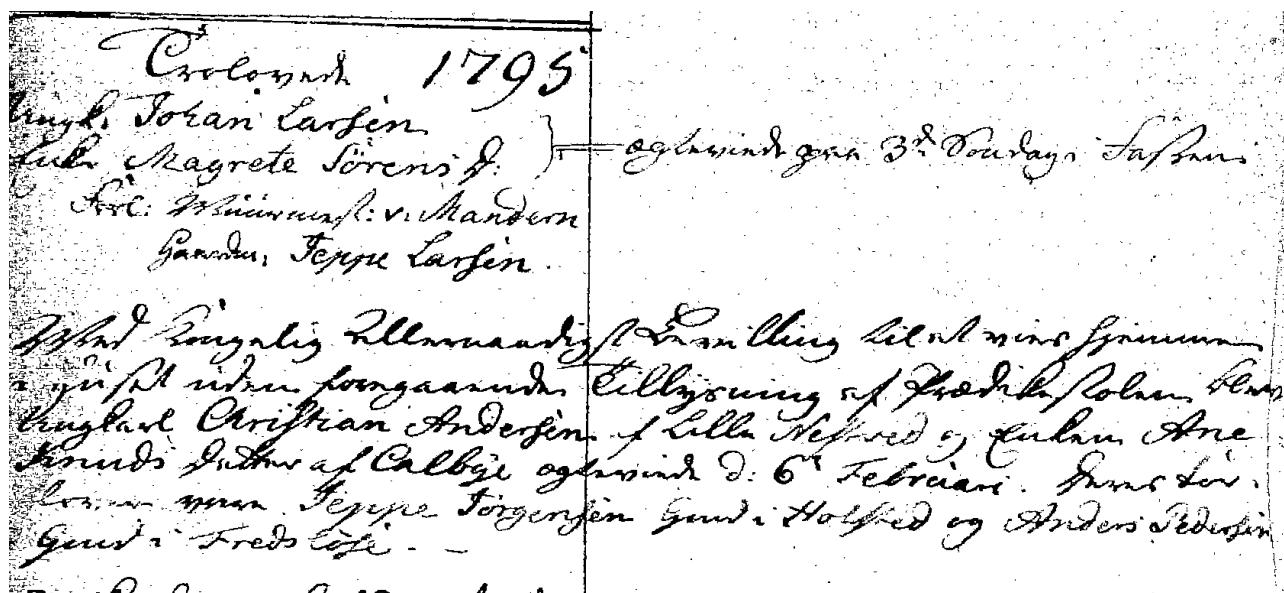 Trolovede 1795
Ungk. Johan Larsen
Enke Magrete Sörens D:
ægteviede paa 3de Søndag i Fasten
Forl: Muurmest: v. Mandern
Gaardm. Jeppe Larsen.
Med Kongelig Allernaadigst Bevilling til at vies hjemme
i Huset uden foregaaende Tillysning af Prædikestolen blev
Ungkarl Christian Andersen af Lille Nestved og Enken Ane
Knuds Datter af Calbye ægteviede d: 6t Februari. Deres for-
lovere vare Jeppe Jörgensen Gmd i Holsted og Anders Pedersen
Gmd i Fredslöse. -